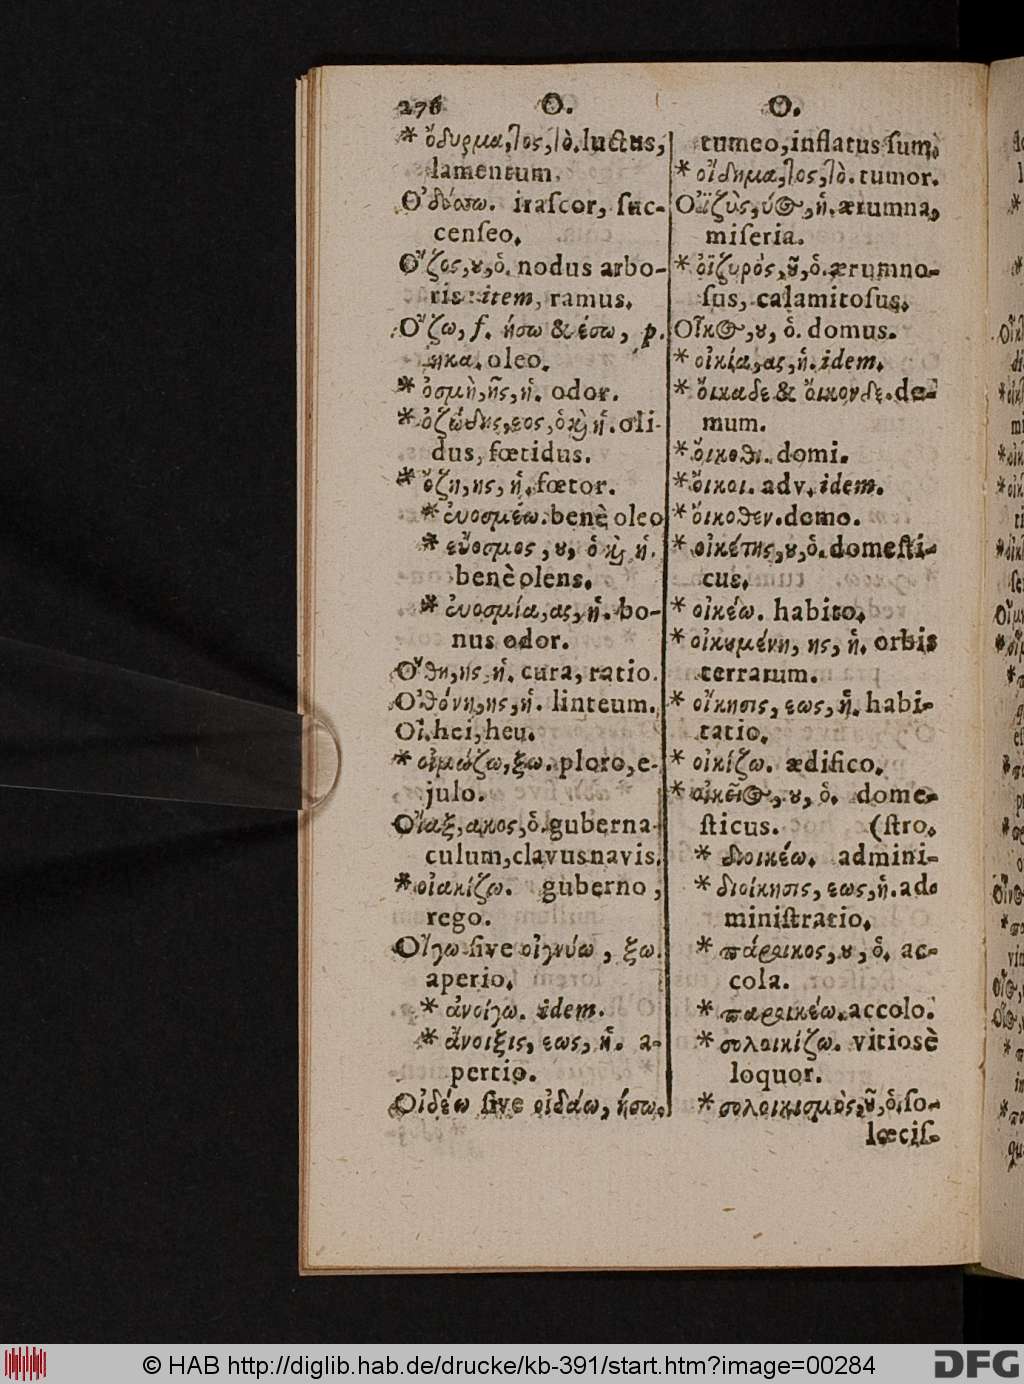 276 O. O.
* ὄδυρμα, τος, τὸ. luctus,
lamentum.
Ὀδύσσω. irascor, suc-
censeo.
Ὄζος, ȣ, ὁ. nodus arbo-
ris: item, ramus.
Ὄζω, f. ήσω & έσω, p.
ηκα. oleo.
* ὀσμὴ, ῆς, ἡ. odor.
* ὀζώδης, εος, ὁ ϗ ἡ. oli-
dus, fœtidus.
* ὄζη, ης, ἡ. fœtor.
* ἐυοσμέω. benè oleo
* εὔοσμος, ȣ, ὁ ϗ ἡ.
benè olens.
* ἐυοσμία, ας, ἡ. bo-
nus odor.
Ὄθη, ης ἡ. cura, ratio.
Ὀθόνη, ης, ἡ. linteum.
Οἲ. hei, heu.
* οἰμώζω, ξω. ploro, e-
julo.
Οἴαξ, ακος, ὁ. guberna-
culum, clavus navis.
* οἰακίζω. guberno,
rego.
Οἴγω sive οἰγνύω, ξω.
aperio.
* ἀνοίγω. idem.
* ἄνοιξις, εως, ἡ. a-
pertio.
Οἰδέω sive οἰδάω, ήσω.
tumeo, inflatus sum.
* οἴδημα, τος, τὸ. tumor.
Οἰζὺς, ύος, ἡ. ærumna,
miseria.
* ὀϊζυρός, ȣ̃, ὁ. ærumno-
sus, calamitosus.
Οἶκος, ȣ, ὁ. domus.
* οἰκία, ας, ἡ. idem.
* ὄικαδε & ὄικονδε. do-
mum.
* ὄικοθι. domi.
* ὄικοι. adv. idem.
* ὄικοθεν. domo.
* οἰκέτης, ȣ, ὁ. domesti-
cus.
* οἰκέω. habito.
* οἰκȣμένη, ης, ἡ. orbis
terrarum.
* οἴκησις, εως, ἡ. habi-
tatio.
* οἰκίζω. ædifico.
* οἰκεῖος, ȣ, ὁ. dome-
sticus. (stro.
* διοικέω. admini-
* διοίκησις, εως, ἡ. ad-
ministratio.
* πάροικος, ȣ, ὁ. ac-
cola.
* παροικέω. accolo.
* σολοικίζω. vitiosè
loquor.
* σολοικισμὸς, ȣ̃, ὁ. so-
lœcis-
© HAB http://diglib.hab.de/drucke/kb-391/start.htm?image=00284
DFG